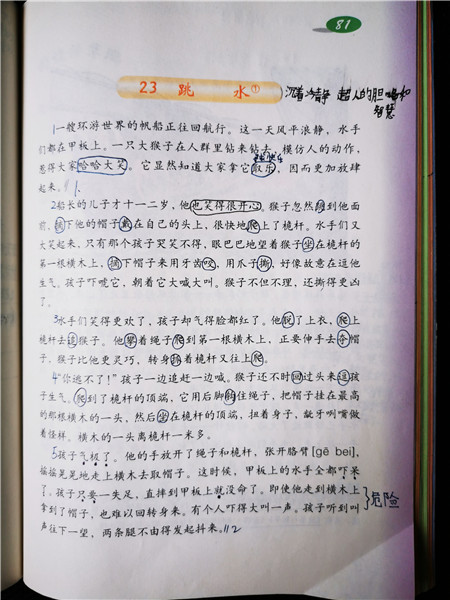 81
23 跳 水①
沉着冷静 超人的胆 和
智慧
1一艘环游世界的帆船正往回航行。这一天风平浪静，水手
们都在甲板上。一只大猴子在人群里钻来钻去，模仿人的动作，
惹得大家哈哈大笑。它显然知道大家拿它取乐，因而更加放肆
起来。
2船长的儿子才十一二岁，他也笑得很开心。猴子忽然跳到他面
前，摘下他的帽子戴在自己的头上，很快地爬上了桅杆。水手们又
大笑起来，只有那个孩子哭笑不得，眼巴巴地望着猴子坐在桅杆的
第一根横木上，摘下帽子来用牙齿咬，用爪子撕，好像故意在逗他
生气。孩子吓唬它，朝着它大喊大叫。猴子不但不理，还撕得更凶
了。
3水手们笑得更欢了，孩子却气得脸都红了。他脱了上衣，爬上
桅杆去追猴子。他攀着绳子爬到第一根横木上，正要伸手去夺帽
子，猴子比他更灵巧，转身抓着桅杆又往上爬。
4“你逃不了！”孩子一边追赶一边喊。猴子还不时回过头来逗孩
子生气。爬到了桅杆的顶端，它用后脚钩住绳子，把帽子挂在最高
的那根横木的一头，然后坐在桅杆的顶端，扭着身子，龇牙咧嘴做
着怪样。横木的一头离桅杆一米多。
5孩子气极了。他的手放开了绳子和桅杆，张开胳臂[gē bei]，
摇摇晃晃地走上横木去取帽子。这时候，甲板上的水手全都吓呆
了。孩子只要一失足，直摔到甲板上就没命了。即使他走到横木上
拿到了帽子，也难以回转身来。有个人吓得大叫一声。孩子听到叫
声往下一望，两条腿不由得发起抖来。
危险